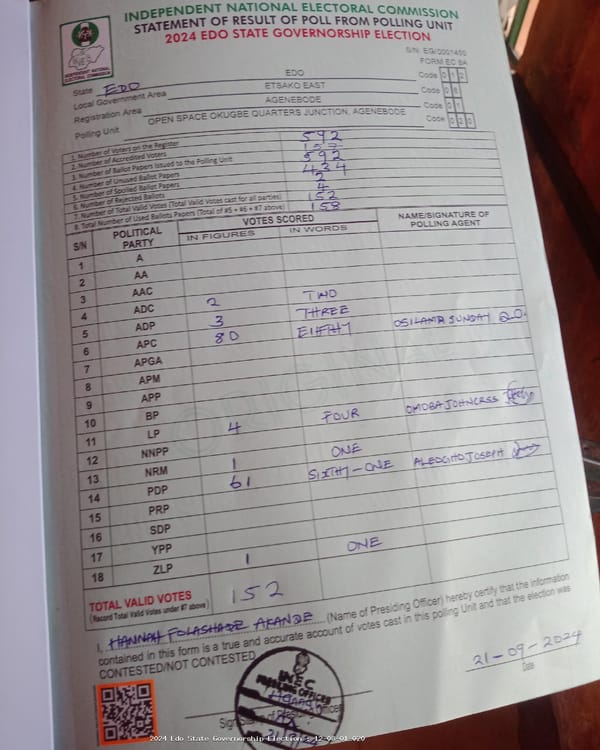 INDEPENDENT NATIONAL ELECTORAL COMMISSION
STATEMENT OF RESULT OF POLL FROM POLLING UNIT
2024 EDO STATE GOVERNORSHIP ELECTION
INEC
INDEPENDENT NATIONAL ELECTORAL COMMISSION
S/N: EG/0001450
FORM EC 8A
State EDO EDO Code 0 1 2
Local Government Area ETSAKO EAST Code
Registration Area AGENEBODE Code 0 1
Polling Unit OPEN SPACE OKUGBE QUARTERS JUNCTION, AGENEBODE Code 0 2 0
1. Number of Voters on the Register 592
2. Number of Accredited Voters 157
3. Number of Ballot Papers Issued to the Polling Unit 592
4. Number of Unused Ballot Papers 434
5. Number of Spoiled Ballot Papers 2
6. Number of Rejected Ballots 4
7. Number of Total Valid Votes (Total Valid Votes cast for all parties) 152
8. Total Number of Used Ballots Papers (Total of #5 + #6 + #7 above) 158
S/N POLITICAL PARTY VOTES SCORED NAME/SIGNATURE OF POLLING AGENT
IN FIGURES IN WORDS
1 A
2 AA
3 AAC
4 ADC 2 TWO
5 ADP 3 THREE
6 APC 80 EIFHTY OSILAMA SUNDAY
7 APGA
8 APM
9 APP
10 BP
11 LP 4 FOUR OMOBA JOHNCRSS
12 NNPP
13 NRM 1 ONE
14 PDP 61 SIXTHY-ONE ALEOGHO JOSEPH
15 PRP
16 SDP
17 YPP
18 ZLP 1 ONE
TOTAL VALID VOTES 152
(Record Total Valid Votes under #7 above)
I, HANNAH FOLASHADE AKANDE (Name of Presiding Officer) hereby certify that the information
contained in this form is a true and accurate account of votes cast in this polling Unit and that the election was
CONTESTED/NOT CONTESTED.
21-09-2024
Date
INEC
PRESIDING OFFICER
2024 Edo State Governorship Election - 12-06-01-020